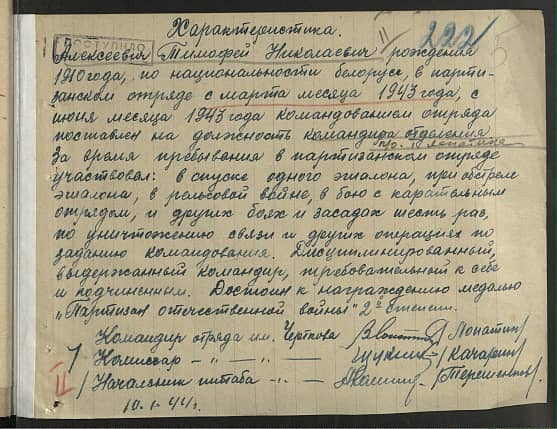 Характеристика.
222
ПОСТУПИЛО
Алексеевич Тимофей Николаевич рождения
1910 года, по национальности белорус, в парти-
занском отряде с марта месяца 1943 года, с
июня месяца 1943 года командованием отряда
поставлен на должность командира отделения
За время пребывания в партизанском отряде
участвовал: в спуске одного эшалона, при обстреле
эшалона, в рельсовой войне, в бою с карательным
отрядом, и других боях и засадах шесть раз,
по уничтожению связи и других операциях по
заданию командования. Дисциплинированный,
выдержанный командир, требовательный к себе
и подчиненным. Достоин к награждению медалью
„Партизан отечественной войны" 2й степени.
Командир отряда им. Черткова /Лопатин/
Комиссар – „ – „ –
Начальник штаба – „ –
10.1.44г.